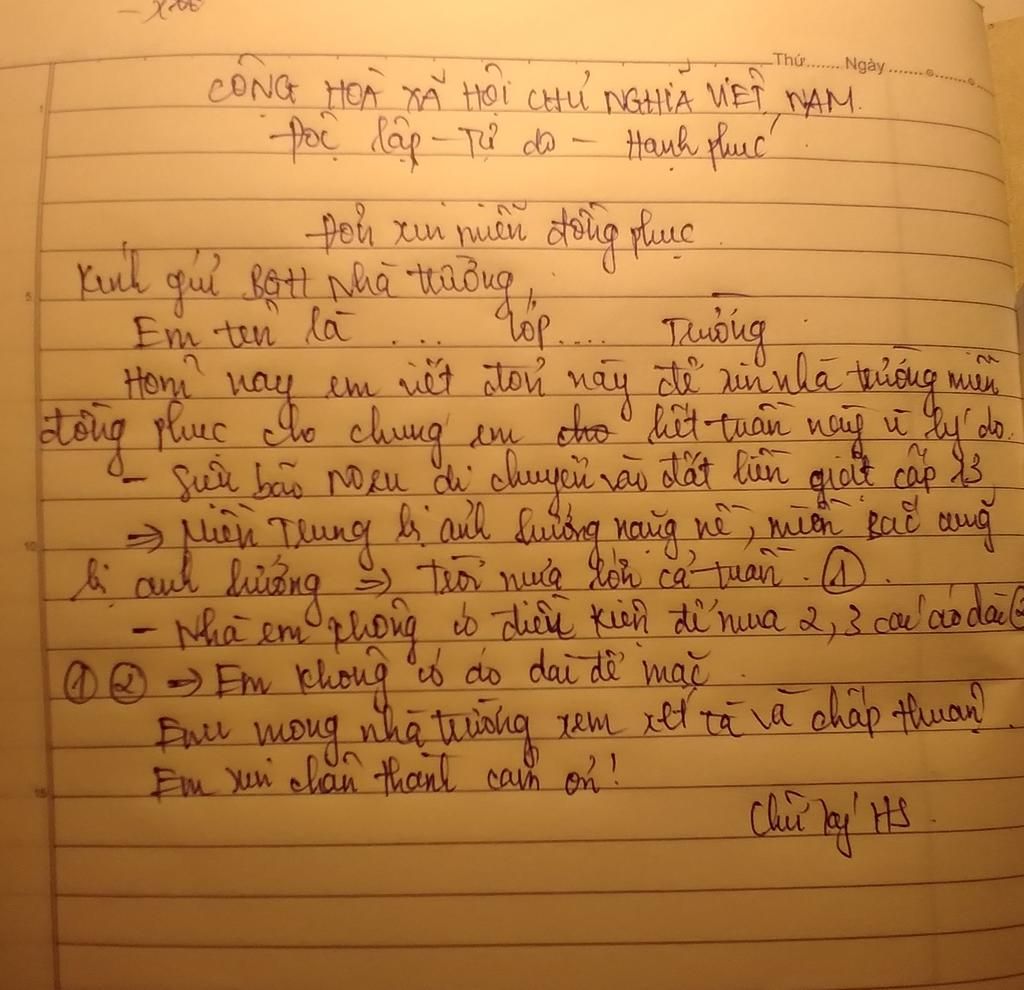 Thứ....... Ngày ..............
CỘNG HOÀ XÃ HỘI CHỦ NGHĨA VIỆT NAM.
Độc lập - Tự do - Hạnh phúc
Đơn xin miễn đồng phục
Kính gửi BGH Nhà trường,
Em tên là .... lớp.... Trường
Hôm nay em viết đơn này để xin nhà trường miễn
đồng phục cho chúng em cho hết tuần này vì lý do.
- Siêu bão NORU di chuyển vào đất liền giật cấp 13
=> Miền Trung bị ảnh hưởng nặng nề, miền Bắc cũng
bị ảnh hưởng => trời mưa lớn cả tuần. ①.
- Nhà em không có điều kiện để mua 2, 3 cái áo dài ②
① ② => Em không có áo dài để mặc.
Em mong nhà trường xem xét và chấp thuận.
Em xin chân thành cảm ơn!
Chữ ký HS.